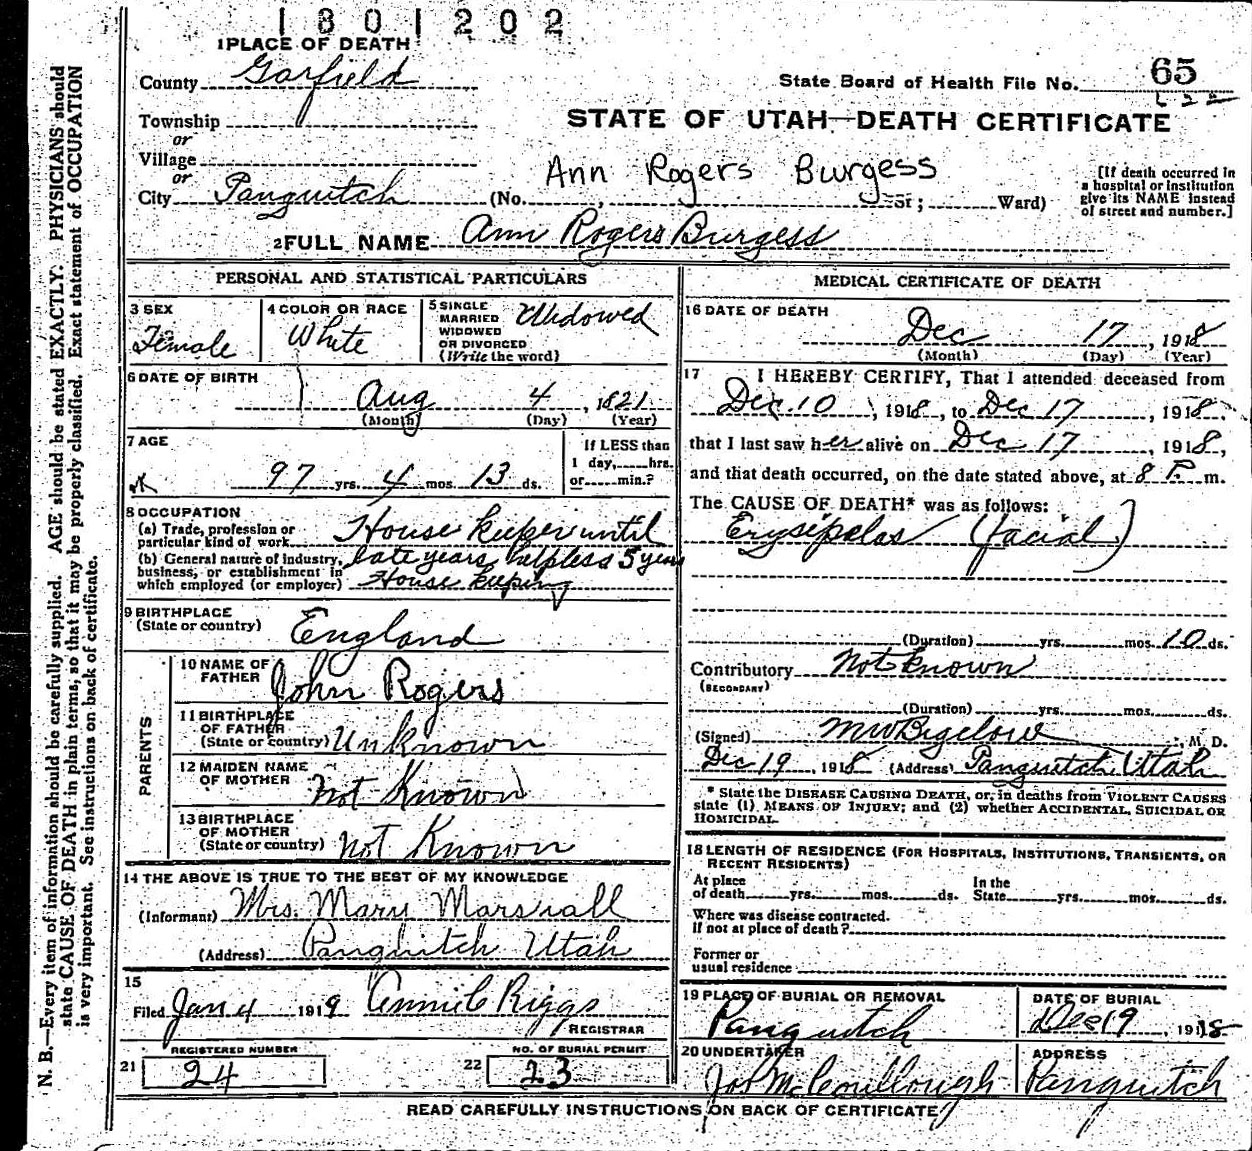 1801202
1 PLACE OF DEATH
County Garfield
State Board of Health File No. 65
Township
or
Village
or
City Panguitch
STATE OF UTAH—DEATH CERTIFICATE
Ann Rogers Burgess
(No. , St; Ward)
[If death occurred in
a hospital or institution
give its NAME instead
of street and number.]
2 FULL NAME Ann Rogers Burgess
PERSONAL AND STATISTICAL PARTICULARS
3 SEX
Female
4 COLOR OR RACE
White
5 SINGLE
MARRIED
WIDOWED
OR DIVORCED
(Write the word)
Widowed
6 DATE OF BIRTH
Aug 4, 1821
(Month) (Day) (Year)
7 AGE
97 yrs. 4 mos. 13 ds.
If LESS than
1 day, hrs.
or min.?
8 OCCUPATION
(a) Trade, profession or
particular kind of work House keeper until
(b) General nature of industry,
business, or establishment in
which employed (or employer)
late years, helpless 5 years
House keeping
9 BIRTHPLACE
(State or country) England
PARENTS
10 NAME OF
FATHER John Rogers
11 BIRTHPLACE
OF FATHER
(State or country) Unknown
12 MAIDEN NAME
OF MOTHER Not Known
13 BIRTHPLACE
OF MOTHER
(State or country) Not Known
14 THE ABOVE IS TRUE TO THE BEST OF MY KNOWLEDGE
(Informant) Mrs. Mary Marshall
(Address) Panguitch Utah
15
Filed Jan 4 1919 Annie C Riggs
REGISTRAR
21 REGISTERED NUMBER
24
22 NO. OF BURIAL PERMIT
23
MEDICAL CERTIFICATE OF DEATH
16 DATE OF DEATH
Dec 17, 1918
(Month) (Day) (Year)
17 I HEREBY CERTIFY, That I attended deceased from
Dec. 10, 1918, to Dec 17, 1918
that I last saw her alive on Dec 17, 1918,
and that death occurred, on the date stated above, at 8 P. m.
The CAUSE OF DEATH* was as follows:
Erysipelas (facial)
(Duration) yrs. mos. 10 ds.
Contributory Not known
(SECONDARY)
(Duration) yrs. mos. ds.
(Signed) M W Bigelow, M. D.
Dec 19 1918 (Address) Panguitch, Utah
* State the DISEASE CAUSING DEATH, or, in deaths from VIOLENT CAUSES
state (1) MEANS OF INJURY; and (2) whether ACCIDENTAL, SUICIDAL OR
HOMICIDAL.
18 LENGTH OF RESIDENCE (FOR HOSPITALS, INSTITUTIONS, TRANSIENTS, OR
RECENT RESIDENTS)
At place
of death yrs. mos. ds.
In the
State yrs. mos. ds.
Where was disease contracted.
if not at place of death?
Former or
usual residence
19 PLACE OF BURIAL OR REMOVAL
Panguitch
DATE OF BURIAL
Dec 19, 1918
20 UNDERTAKER
ADDRESS
Panguitch
READ CAREFULLY INSTRUCTIONS ON BACK OF CERTIFICATE
N. B.—Every item of information should be carefully supplied. AGE should be stated EXACTLY. PHYSICIANS should
state CAUSE OF DEATH in plain terms, so that it may be properly classified. Exact statement of OCCUPATION
is very important. See instructions on back of certificate.